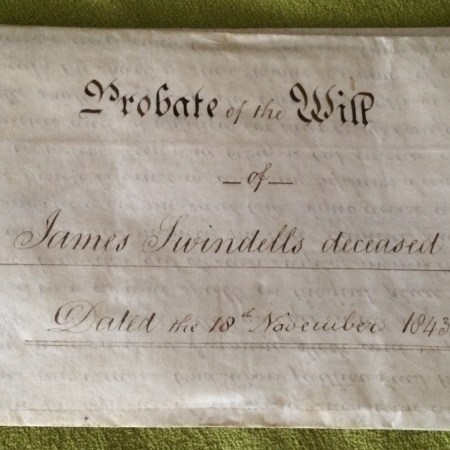 Probate of the Will
— of —
James Swindells deceased
Dated the 18th November 1843